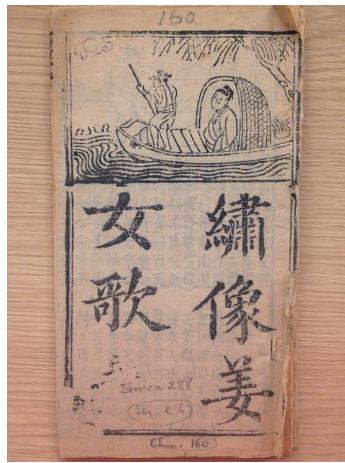 160
繡像姜
女歌
Sinica
Chin. 160